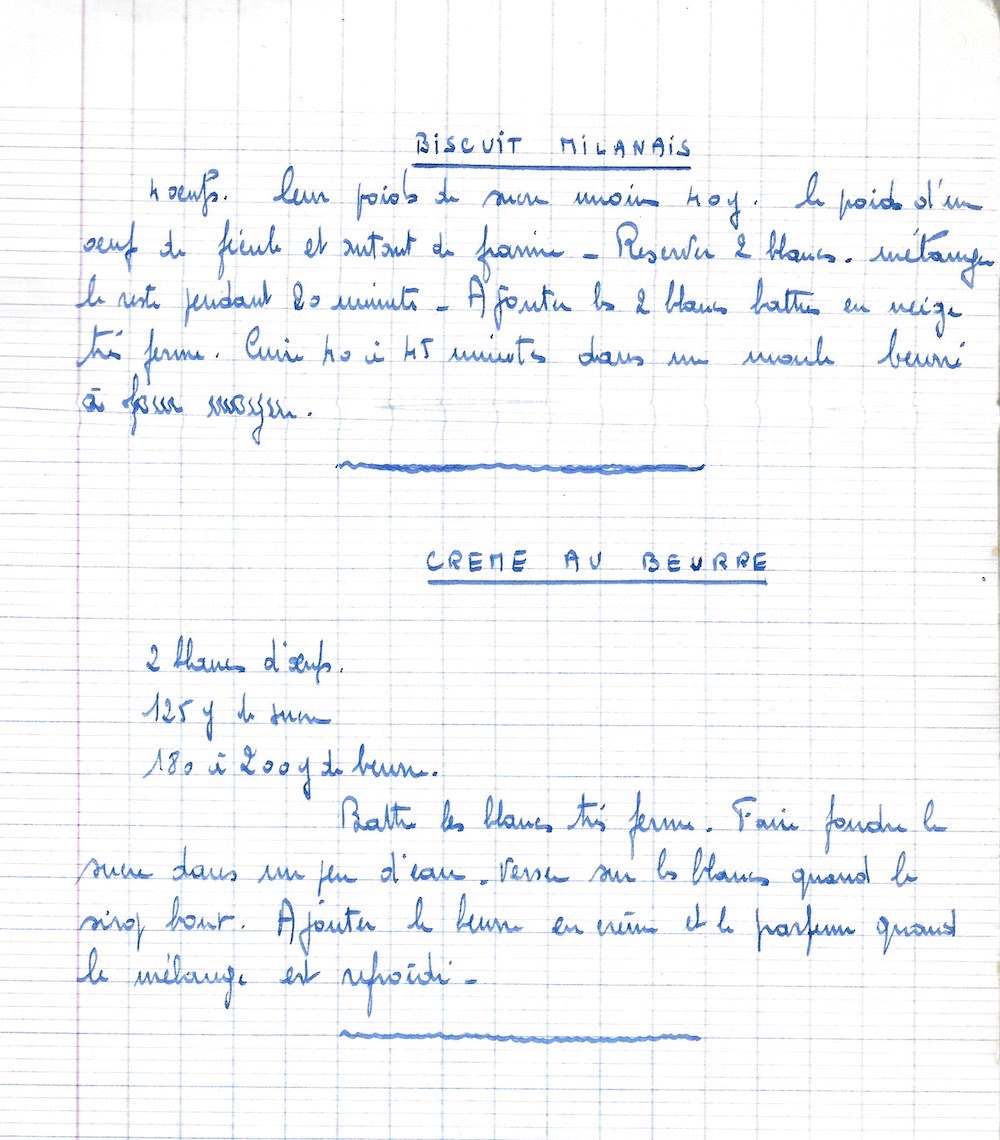 BISCUIT MILANAIS
4 oeufs. leur poids de sucre moins 40g. le poids d'un
oeuf de fécule et autant de farine - Reserver 2 blancs. mélanger
le reste pendant 20 minutes - Ajouter les 2 blancs battus en neige
très ferme. Cuire 40 à 45 minutes dans un moule beurré
à four moyen.
CREME AU BEURRE
2 blancs d'oeufs.
125 g de sucre
180 à 200 g de beurre.
Battre les blancs très ferme. Faire fondre le
sucre dans un peu d'eau. Verser sur les blancs quand le
sirop bout. Ajouter le beurre en crème et le parfum quand
le mélange est refroidi -